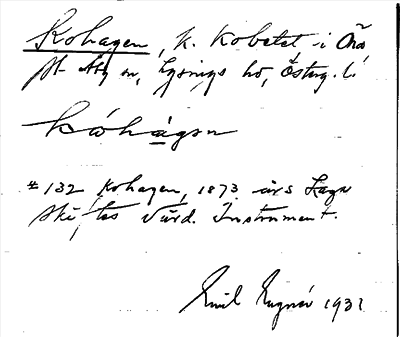 Kohagen, K. Kobetet, i Åsa
pt Aby sn, Lysings hd, Östg. l.
kóhàgen
# 132 Kohagen, 1873 års Laga
skiftes Värd. Instrument.
Emil 1932